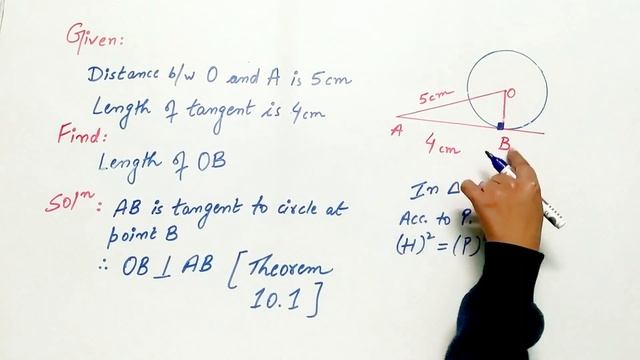 Given:
Distance b/w O and A is 5cm
Length of tangent is 4cm
Find:
Length of OB
Solⁿ: AB is tangent to circle at
point B
∴ OB ⊥ AB [Theorem
10.1]
5cm
O
A
4cm
B
In Δ
Acc. to P.
(H)² = (P)